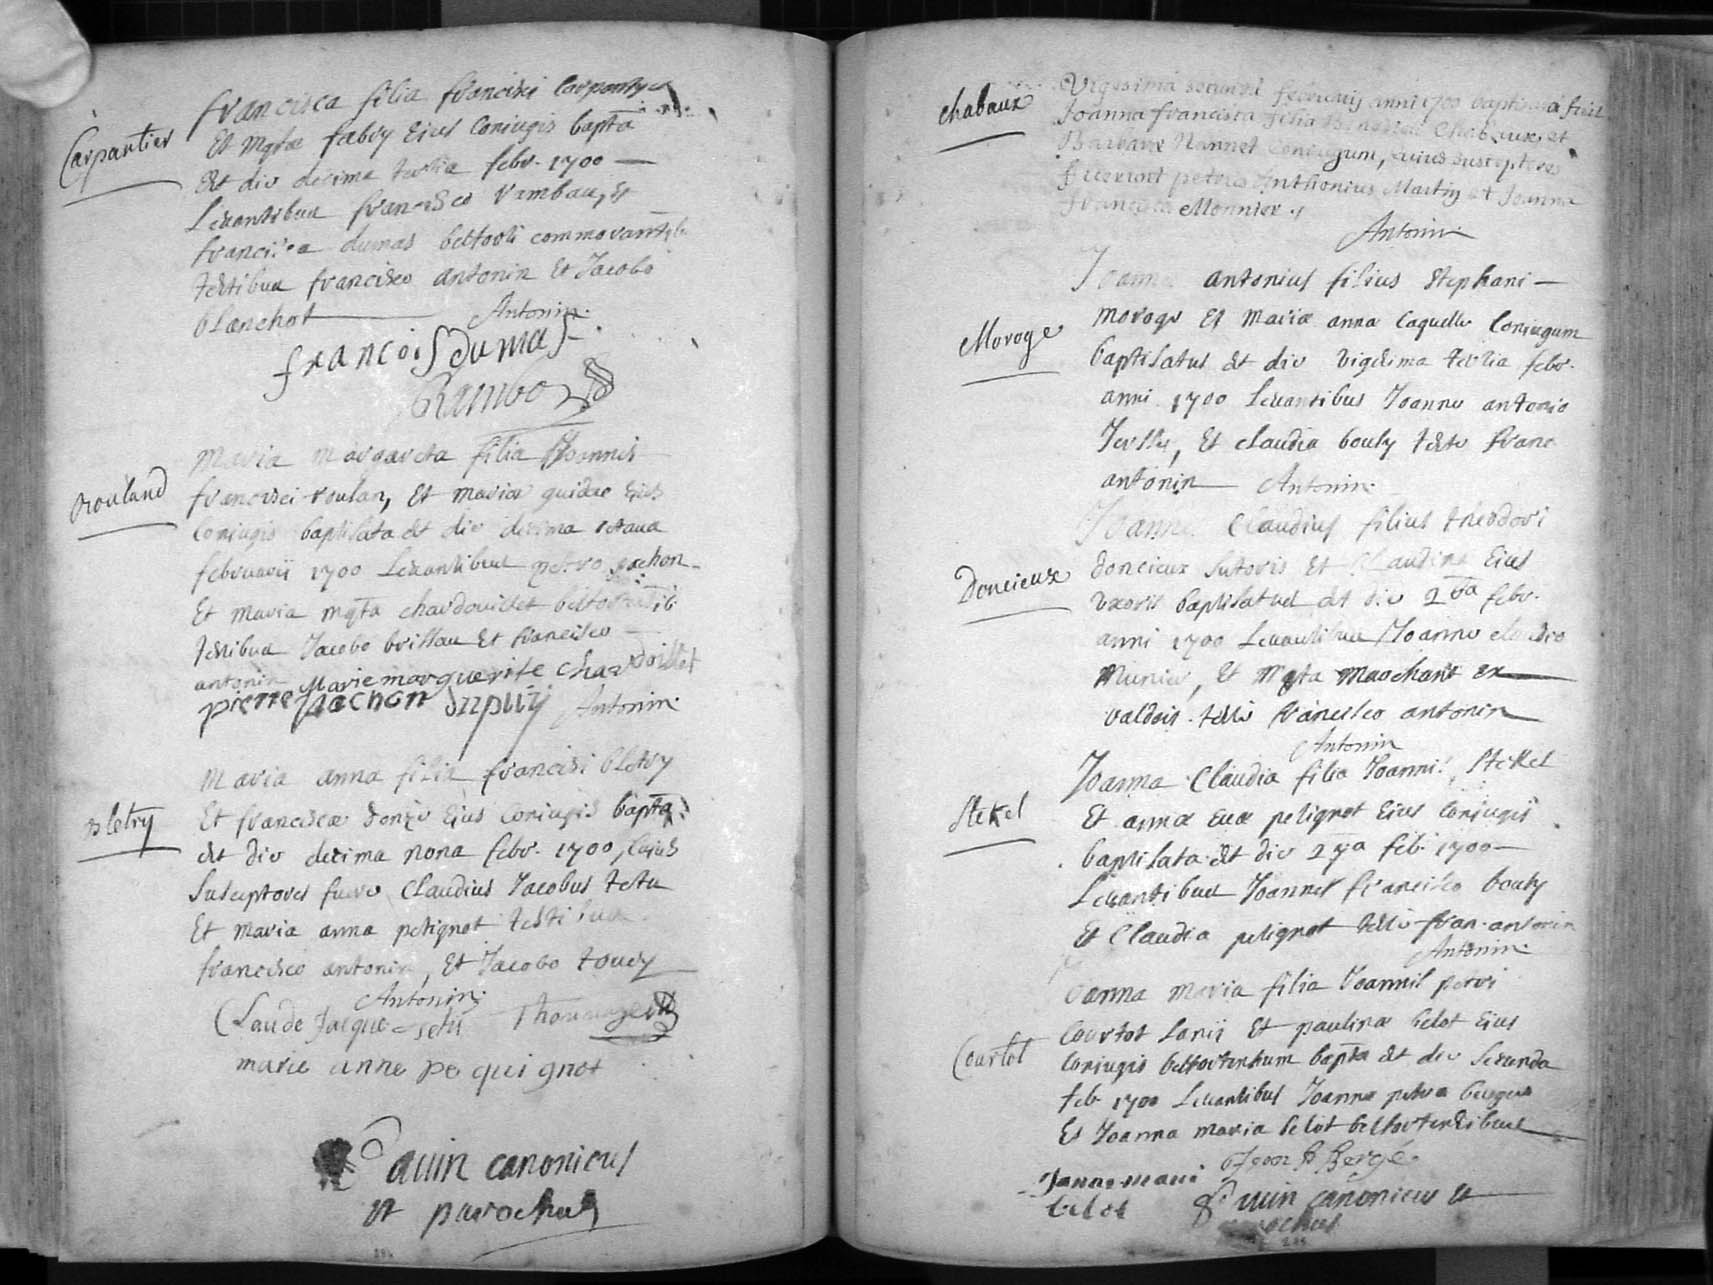 Carpantier
francisca filia francisci Carpantier
Et Mgtæ fabry Eius Coniugis bapta
Est die decima tertia febr. 1700
Leuantibus francisco Rambau, Et
francisca dumas belforti commorantib
testibus francisco antonin Et Jacobo
blanchot Antonin.
francois dumas
Rambo
Rouland
Maria Margareta filia Joannis
francisci roulan, Et mariæ guidæ Eius
Coniugis baptisata Est die decima octaua
februarii 1700 Leuantibus petro pachon
Et maria mgta chardouillet
testibus Jacobo brissau Et francisco
antonin Marie marguerite Chardoillet
pierre pachon Antonin.
Bletry
Maria anna filia francisci bletry
Et franciscæ Eius Coniugis bapta
Est die decima nona febr. 1700, Cuius
Susceptores fuere Claudius Jacobus tetu
Et maria anna petignot testibus
francisco antonin, Et Jacobo touey
Antonin.
Claude Jacque tetu
marie anne pequignot
auin canonicus
et parochus
Chabaux
Vigesima secunda februarij anni 1700 baptisata fuit
Joanna francisca filia Chabaux, et
Barbaræ Nannet Coniugum, cuius susceptores
fuerunt petrus Anthonius Martin et Joanna
francisca Monnier.
Antonin
Moroge
Joannes antonius filius Stephani
moroge Et Mariæ anna Caquelle Coniugum
baptisatus Est die vigesima tertia febr.
anni 1700 Leuantibus Joanne antonio
Et claudia bouly teste franc
antonin Antonin.
Doncieux
Joannes Claudius filius theodori
doncieux Sutoris Et Claudinæ Eius
vxoris baptisatus est die febr.
anni 1700 Leuantibus Joanne claudio
Munier, Et Mgta Marchant ex
valdois. teste francisco antonin
Antonin
Stekel
Joanna Claudia filia Joannis Stekel
Et annæ euæ petignot Eius Coniugis
baptisata Est die 27a feb. 1700
Leuantibus Joannes francisco bouly
Et Claudia petignot teste fran. antonin
Antonin.
Courtot
Joanna maria filia Joannis petri
Courtot Lanii Et paulinæ belot Eius
Coniugis belfortensium bapta Est die Secunda
feb. 1700 Leuantibus Joanne petro
Et Joanna maria belot belfortensibus
Jean P Bergé
Janne mari
belot auin canonicus et
parochus